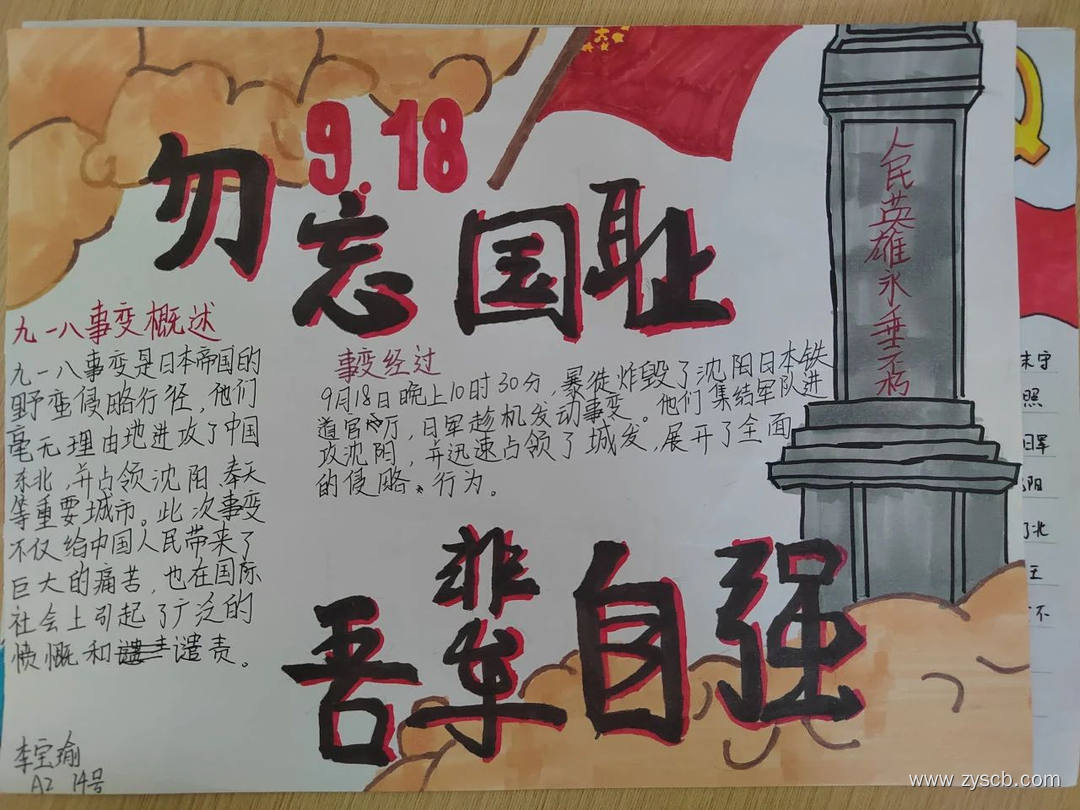 9.18
勿忘国耻
人民英雄永垂不朽
九一八事变概述
九一八事变是日本帝国的
野蛮侵略行径,他们
毫无理由地进攻了中国
东北,并占领沈阳、奉天
等重要城市。此次事变
不仅给中国人民带来了
巨大的痛苦,也在国际
社会上引起了广泛的
愤慨和谴责。
事变经过
9月18日晚上10时30分,暴徒炸毁了沈阳日本铁
道官厅,日军趁机发动事变。他们集结军队进
攻沈阳,并迅速占领了城发,展开了全面
的侵略、行为。
吾辈自强
李宝瑜
A2 14号
末守
照
日军
阳
了北
王
不
www.zyscb.com